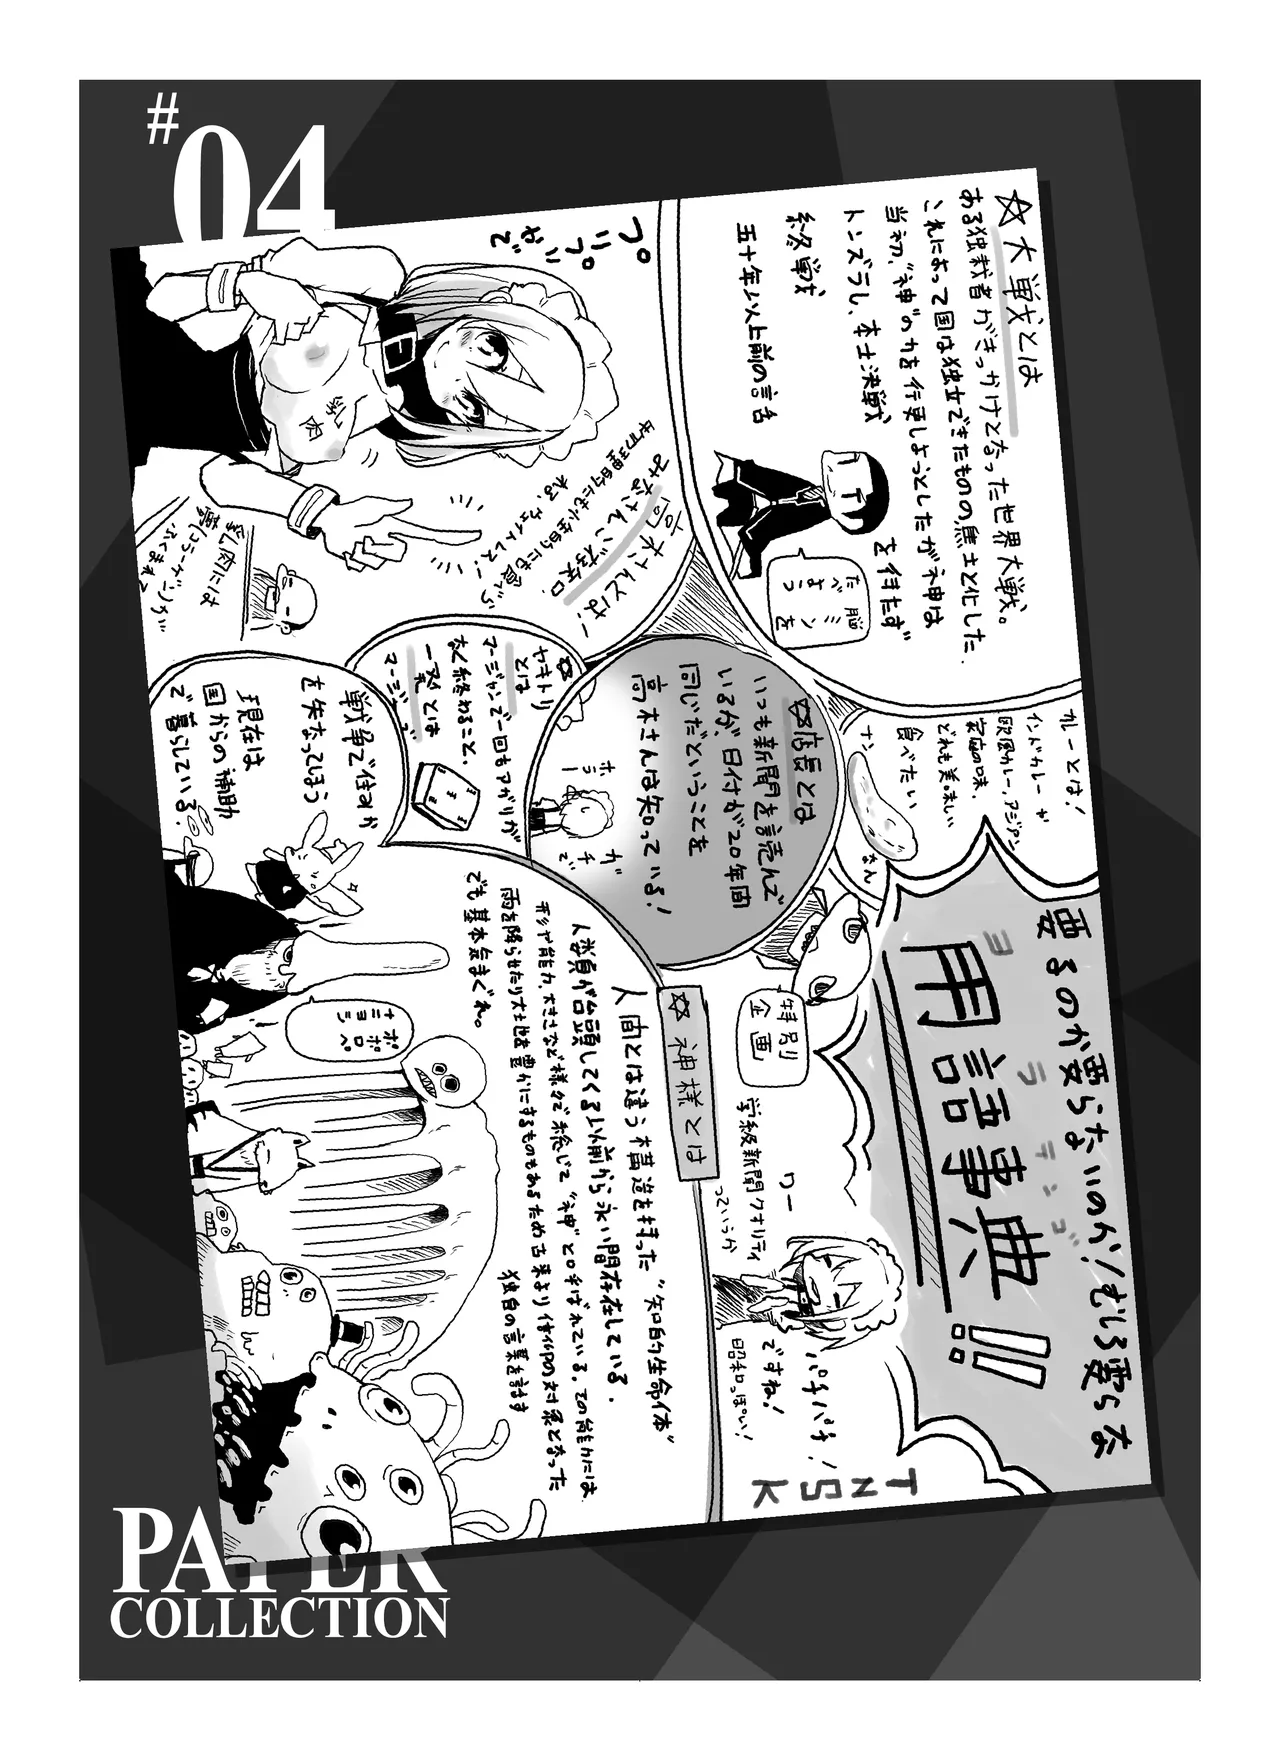 #04
要るのか要らないのか!むしろ要らな
ヨラテンゴ
用語事典!!
特別
企画
わー
パチパチ!
ですね!
昭和っぽい!
学級新聞クオリティ
っていうか
TNSK
☆大戦とは
ある独裁者がきっかけとなった世界大戦。
これによって国は独立できたものの焦土と化した.
当初、"神"の力を行使しようとしたが神は
トンズラし、本土決戦
を待たず
終戦
五十年以上前の話
脳ミソを
たべよう
カレーとは!
インドカレーが
欧風カレー、アジアン
家庭の味、
どれも美味しい
食べたい
ナン
なん
☆店長とは
いつも新聞を読んで
いるが、日付が20年間
同じだということを
高木さんは知っている!
ホラー
ガチで
高木さんとは!
みなさんご存知
性的にも食べ
れる、ウェイトレス!
プリプリ
やで
乳肉
乳肉には
夢(コラーゲン)が
☆ヤキトリ
とは
マージャンで一回もアガリが
なく終わること.
戦争で住みか
を失なってしまう
現在は
国からの補助
で暮らしている.
☆神様とは
人間とは違う構造を持った"知的生命体"
人類が台頭してくる以前から永い間存在している.
形や能力、大きさなど様々で総じて"神"と呼ばれている。その能力には
雨を降らせたり大地を豊かにするものもあるため古来より信仰の対象となった
でも基本気まぐれ。
独自の言葉を話す
ポポロペ
ナニヨシ
PAPER
COLLECTION